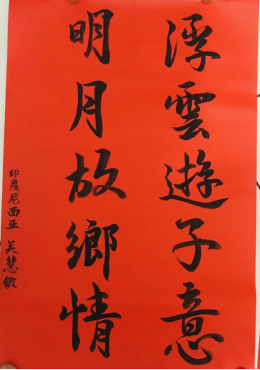 浮雲遊子意
明月故鄉情
印度尼西亚 吴慧敏